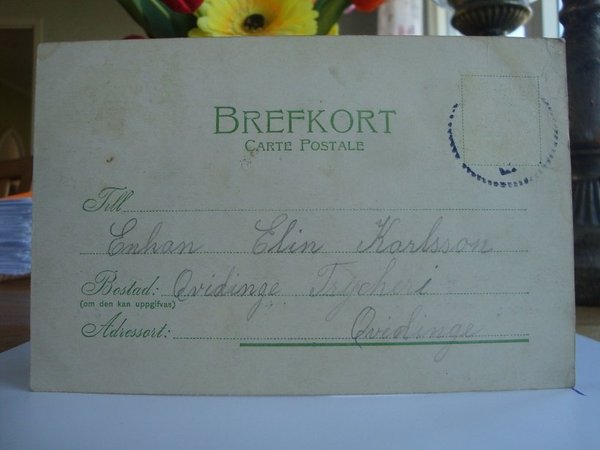 BREFKORT
CARTE POSTALE
Till
Enhan Elin Karlsson
Bostad: Qvidinge Trycheri
(om den kan uppgifvas)
Adressort: Qvidinge